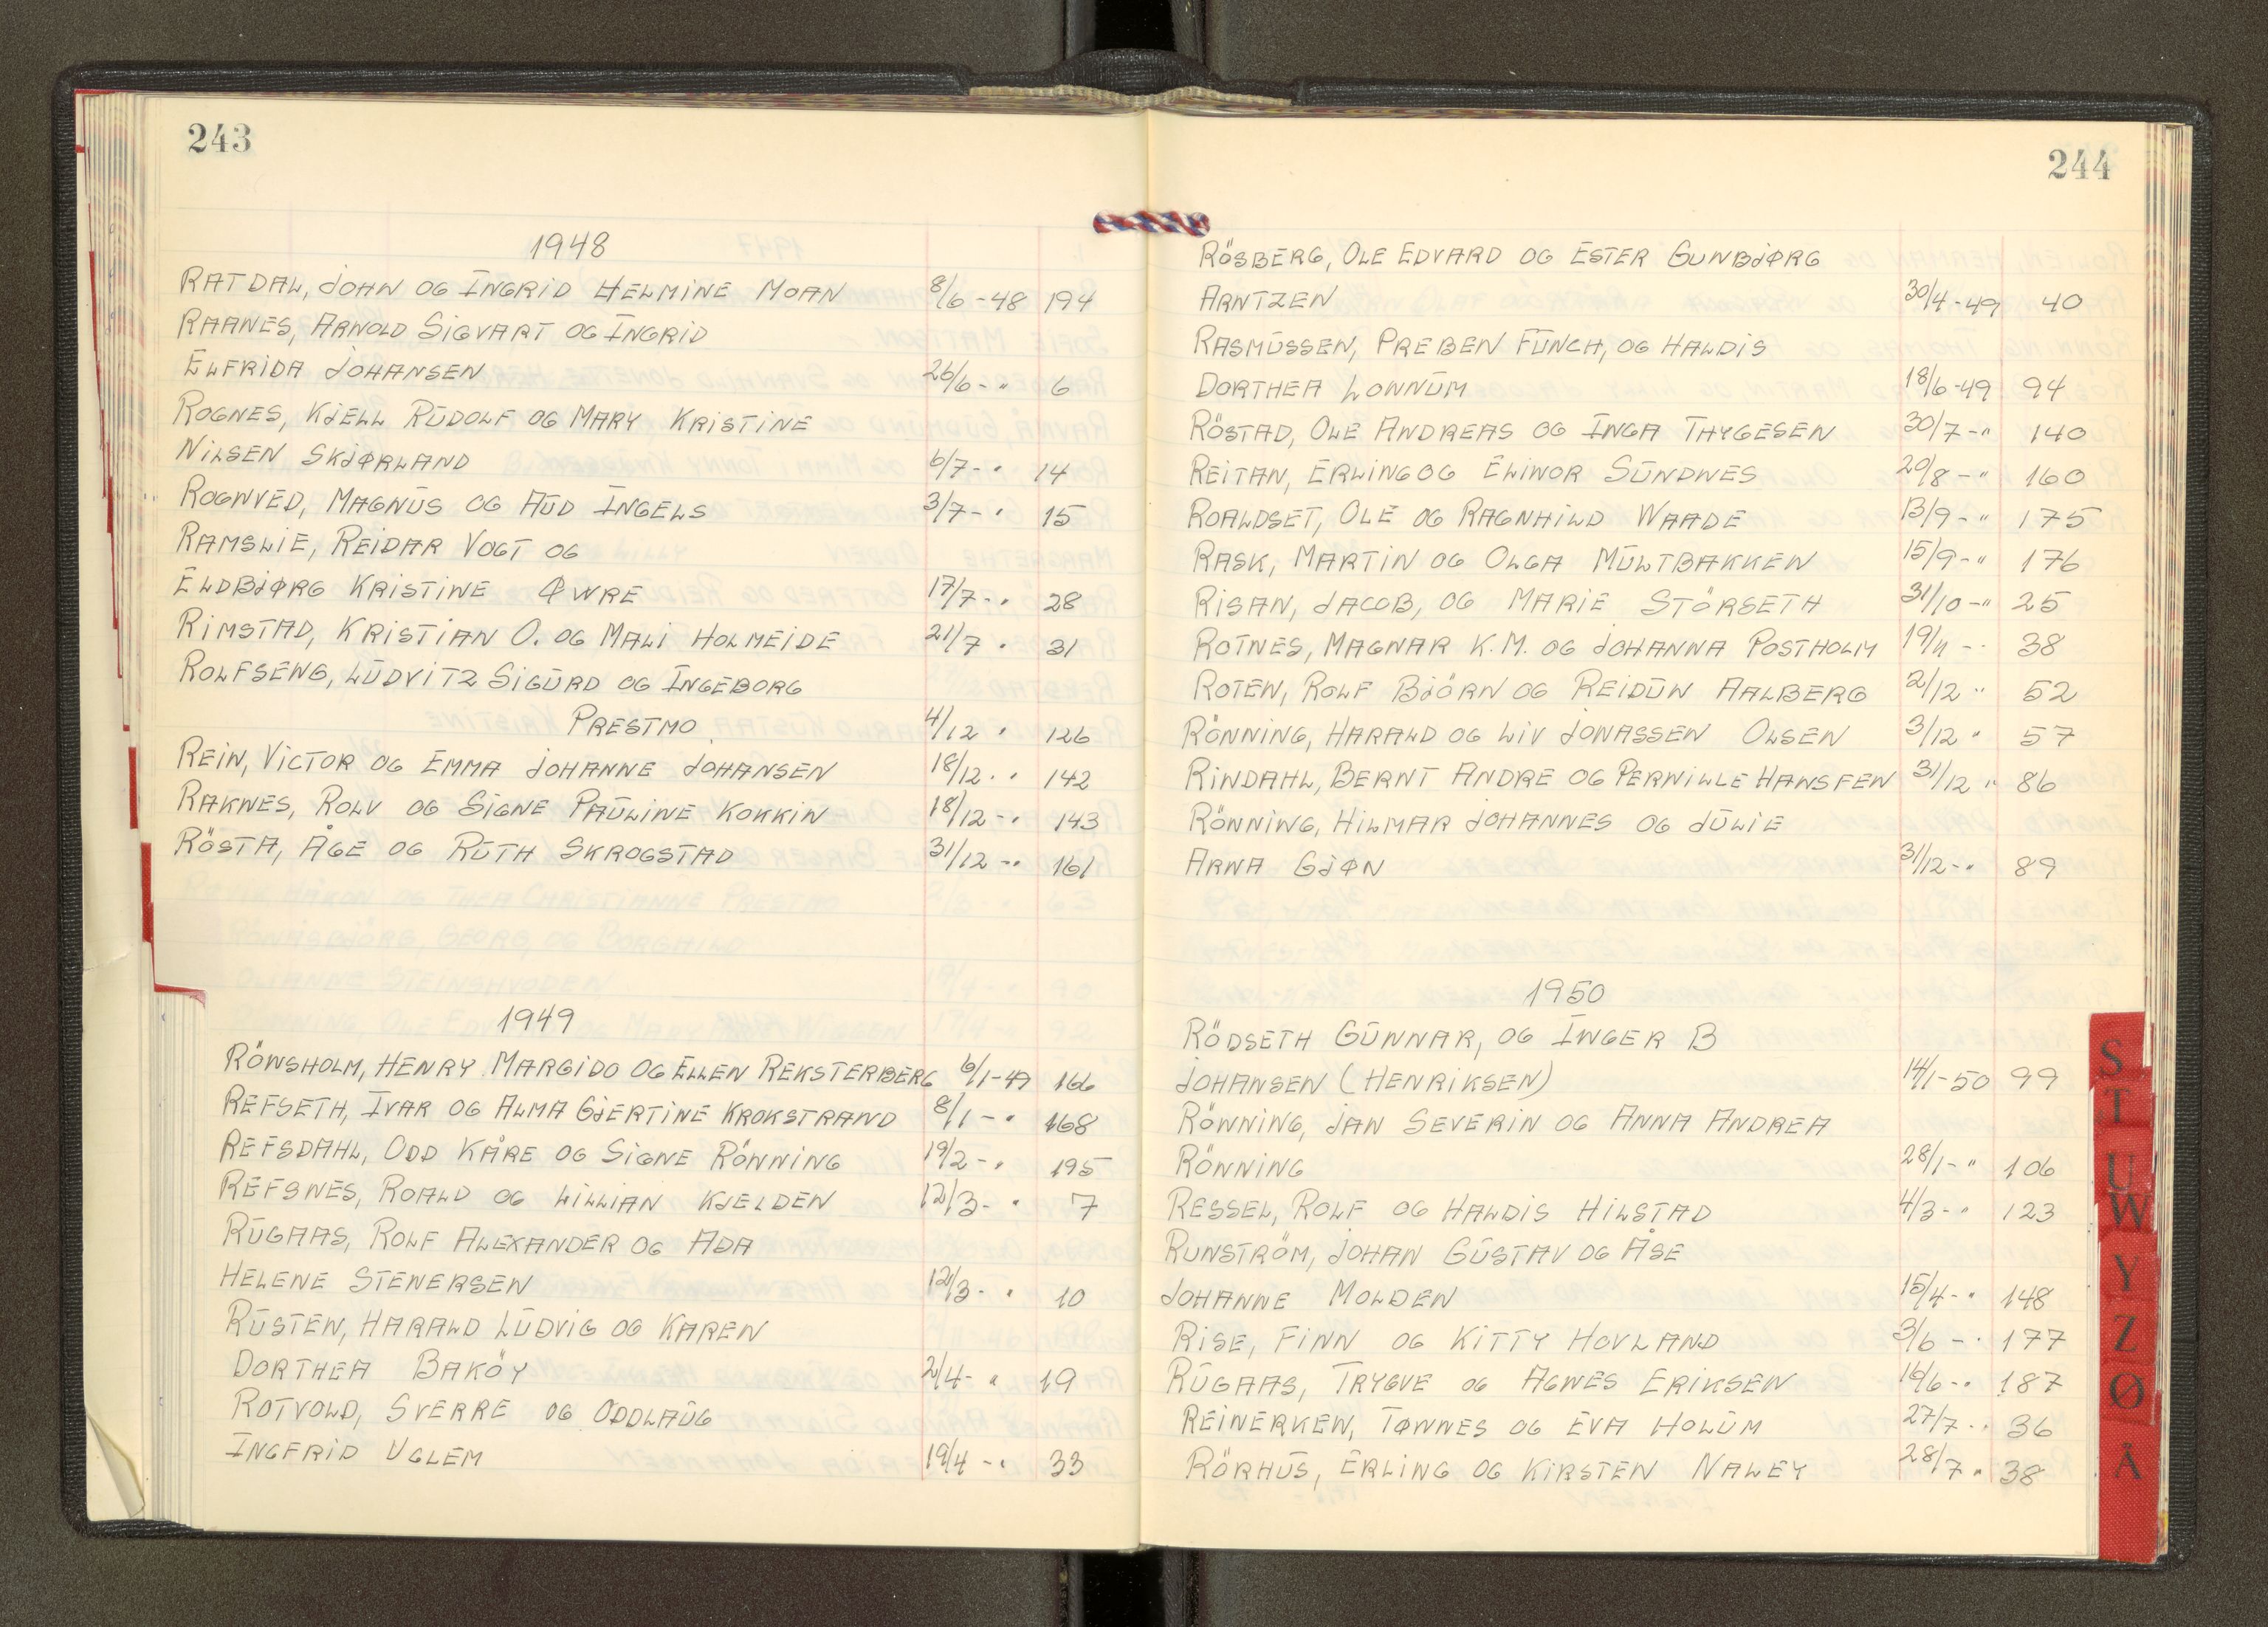 243
1948
RATDAL, JOHN OG INGRID HELMINE MOAN 8/6 -48 194
RAANES, ARNOLD SIGVART OG INGRID
ELFRIDA JOHANSEN 26/6 - " 6
ROGNES, KJELL RŪDOLF OG MARY KRISTINE
NILSEN SKJØRLAND 6/7 - " 14
ROGNVED, MAGNŪS OG AŪD INGELS 3/7 - " 15
RAMSLIE, REIDAR VOGT OG
ELDBJØRG KRISTINE ØWRE 17/7 - " 28
RIMSTAD, KRISTIAN O. OG MALI HOLMEIDE 21/7 " 31
ROLFSENG, LŪDVITZ SIGŪRD OG INGEBORG
PRESTMO 4/12 " 126
REIN, VICTOR OG EMMA JOHANNE JOHANSEN 18/12 - " 142
RAKNES, ROLV OG SIGNE PAŪLINE KOKKIN 18/12 - " 143
RÖSTA, ÅGE OG RŪTH SKROGSTAD 31/12 - " 161
1949
RÖNSHOLM, HENRY MARGIDO OG ELLEN REKSTERBERG 6/1-49 166
REFSETH, IVAR OG ALMA GJERTINE KROKSTRAND 8/1 - " 168
REFSDAHL, ODD KÅRE OG SIGNE RÖNNING 19/2 - " 195
REFSNES, ROALD OG LILLIAN KJELDEN 12/3 - " 7
RŪGAAS, ROLF ALEXANDER OG ADA
HELENE STENERSEN 12/3 - " 10
RŪSTEN, HARALD LŪDVIG OG KAREN
DORTHEA BAKÖY 2/4 - " 19
ROTVOLD, SVERRE OG ODDLAŪG
INGFRID UGLEM 19/4 - " 33
244
RÖSBERG, OLE EDVARD OG ESTER GUNBJØRG
ARNTZEN 30/4-49 40
RASMŪSSEN, PREBEN FŪNCH, OG HALDIS
DORTHEA LONNŪM 18/6-49 94
RÖSTAD, OLE ANDREAS OG INGA THYGESEN 30/7 - " 140
REITAN, ERLING OG ELINOR SŪNDNES 20/8 - " 160
ROALDSET, OLE OG RAGNHILD WAADE 13/9 - " 175
RASK, MARTIN OG OLGA MŪLTBAKKEN 15/9 - " 176
RISAN, JACOB, OG MARIE STÖRSETH 31/10 - " 25
ROTNES, MAGNAR K.M. OG JOHANNA POSTHOLM 19/11 - " 38
ROTEN, ROLF BJÖRN OG REIDŪN AALBERG 2/12 " 52
RÖNNING, HARALD OG LIV JONASSEN OLSEN 3/12 " 57
RINDAHL, BERNT ANDRE OG PERNILLE HANSFEN 31/12 " 86
RÖNNING, HILMAR JOHANNES OG JŪLIE
ARNA GJØN 31/12 - " 89
1950
RÖDSETH GŪNNAR, OG INGER B
JOHANSEN (HENRIKSEN) 14/1-50 99
RÖNNING, JAN SEVERIN OG ANNA ANDREA
RÖNNING 28/1 - " 106
RESSEL, ROLF OG HALDIS HILSTAD 4/3 - " 123
RUNSTRÖM, JOHAN GŪSTAV OG ÅSE
JOHANNE MOLDEN 15/4 - " 148
RISE, FINN OG KITTY HOVLAND 3/6 - " 177
RŪGAAS, TRYGVE OG AGNES ERIKSEN 16/6 - " 187
REINERKEN, TØNNES OG EVA HOLŪM 27/7 - " 36
RÖRHŪS, ERLING OG KIRSTEN NALEY 28/7 " 38
S
T
U
W
Y
Z
Ø
Å